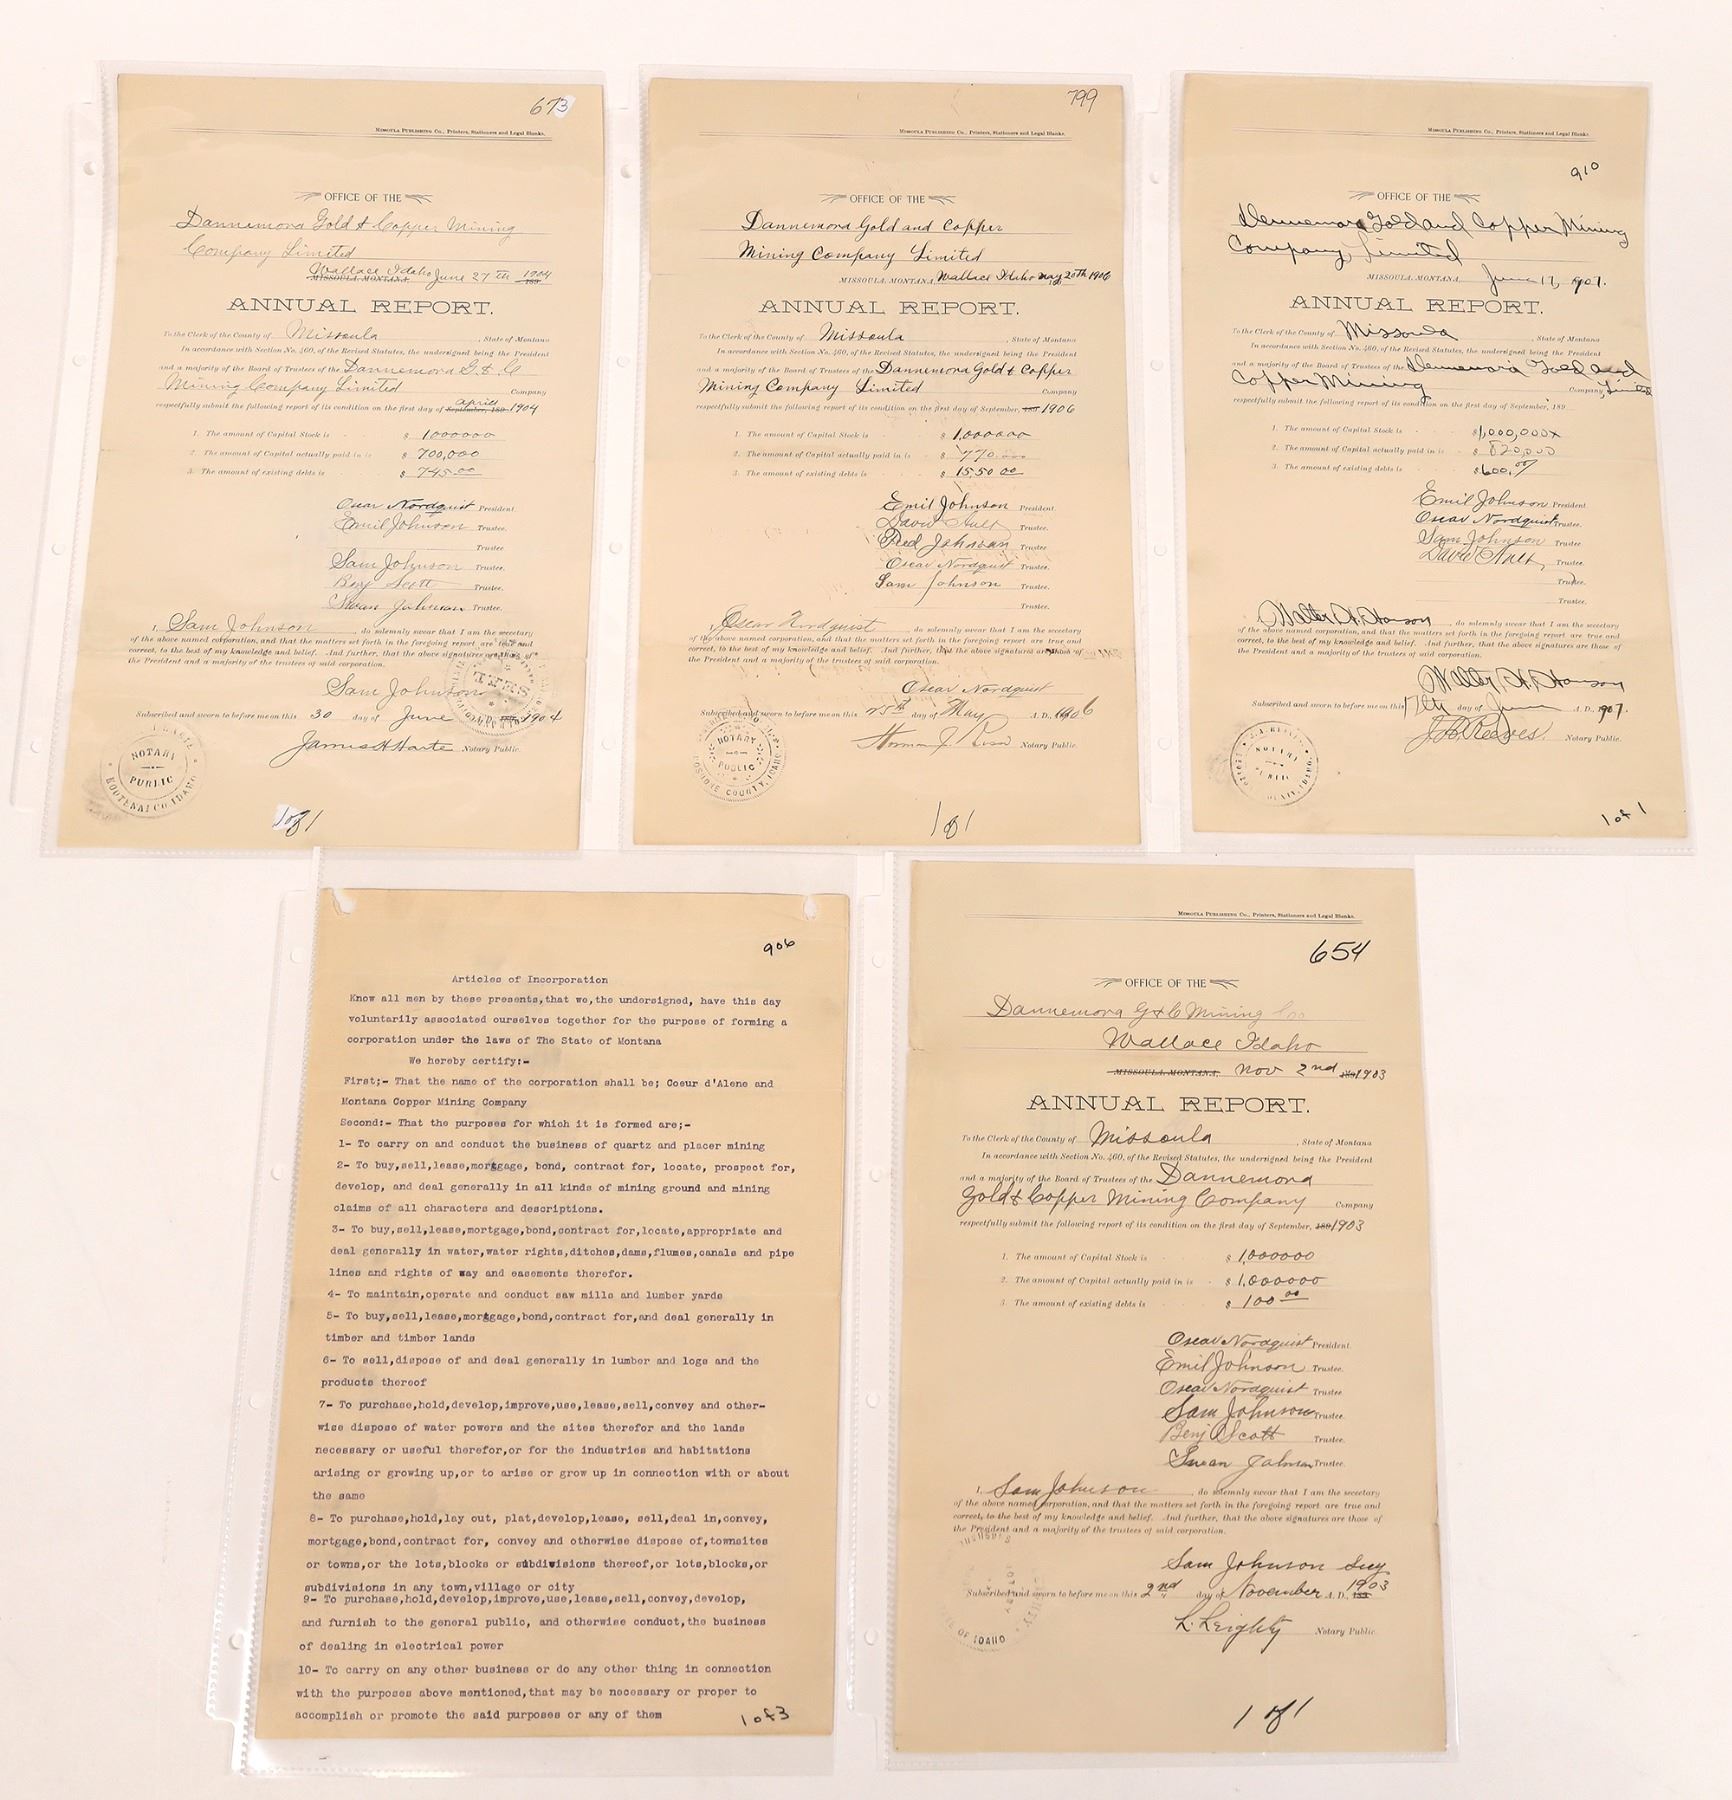 673
Missoula Publishing Co., Printers, Stationers and Legal Blanks.
OFFICE OF THE
Dannemora Gold & Copper Mining
Company Limited
Wallace Idaho June 27th 1904
MISSOULA, MONTANA, 189
ANNUAL REPORT.
To the Clerk of the County of Missoula, State of Montana
In accordance with Section No. 460, of the Revised Statutes, the undersigned being the President
and a majority of the Board of Trustees of the Dannemora G. & C
Mining Company Limited Company
respectfully submit the following report of its condition on the first day of September, 189 April 1904
1. The amount of Capital Stock is $ 1000000
2. The amount of Capital actually paid in is $ 700,000
3. The amount of existing debts is $ 745.00
Oscar Nordquist President.
Emil Johnson Trustee.
Trustee.
Sam Johnson Trustee.
Benj Scott Trustee.
Swan Johnson Trustee.
I, Sam Johnson, do solemnly swear that I am the secretary
of the above named corporation, and that the matters set forth in the foregoing report are true and
correct, to the best of my knowledge and belief. And further, that the above signatures are those of
the President and a majority of the trustees of said corporation.
Sam Johnson
Subscribed and sworn to before me on this 30 day of June 1904
James H Harte Notary Public.
NOTARY
PUBLIC
KOOTENAI CO. IDAHO
1 of 1
799
Missoula Publishing Co., Printers, Stationers and Legal Blanks.
OFFICE OF THE
Dannemora Gold and Copper
Mining Company Limited
MISSOULA, MONTANA, Wallace Idaho May 20th 1906
ANNUAL REPORT.
To the Clerk of the County of Missoula, State of Montana
In accordance with Section No. 460, of the Revised Statutes, the undersigned being the President
and a majority of the Board of Trustees of the Dannemora Gold & Copper
Mining Company Limited Company
respectfully submit the following report of its condition on the first day of September, 189 1906
1. The amount of Capital Stock is $ 1,000000
2. The amount of Capital actually paid in is $ 770.000
3. The amount of existing debts is $ 1550 00
Emil Johnson President.
David Ault Trustee.
Fred Johnson Trustee.
Oscar Nordquist Trustee.
Sam Johnson Trustee.
Trustee.
I, Oscar Nordquist, do solemnly swear that I am the secretary
of the above named corporation, and that the matters set forth in the foregoing report are true and
correct, to the best of my knowledge and belief. And further, that the above signatures are those of
the President and a majority of the trustees of said corporation.
Oscar Nordquist
Subscribed and sworn to before me on this 25th day of May A. D., 1906
Notary Public.
NOTARY
PUBLIC
SHOSHONE COUNTY, IDAHO
1 of 1
910
Missoula Publishing Co., Printers, Stationers and Legal Blanks.
OFFICE OF THE
Dennemora Gold and Copper Mining
Company, Limited
MISSOULA, MONTANA, June 17, 1907.
ANNUAL REPORT.
To the Clerk of the County of Missoula, State of Montana
In accordance with Section No. 460, of the Revised Statutes, the undersigned being the President
and a majority of the Board of Trustees of the Dennemora Gold and
Copper Mining Company Limited
respectfully submit the following report of its condition on the first day of September, 189
1. The amount of Capital Stock is $1,000,000x
2. The amount of Capital actually paid in is $ 820,000
3. The amount of existing debts is $600.00
Emil Johnson President.
Oscar Nordquist Trustee.
Sam Johnson Trustee.
David Ault, Trustee.
Trustee.
Trustee.
Walter H. Hanson, do solemnly swear that I am the secretary
of the above named corporation, and that the matters set forth in the foregoing report are true and
correct, to the best of my knowledge and belief. And further, that the above signatures are those of
the President and a majority of the trustees of said corporation.
Walter H. Hanson
Subscribed and sworn to before me on this 17th day of June A. D., 1907.
Reeves. Notary Public.
NOTARY
PUBLIC
1 of 1
906
Articles of Incorporation
Know all men by these presents,that we,the undersigned, have this day
voluntarily associated ourselves together for the purpose of forming a
corporation under the laws of The State of Montana
We hereby certify:-
First;- That the name of the corporation shall be; Coeur d'Alene and
Montana Copper Mining Company
Second:- That the purposes for which it is formed are;-
1- To carry on and conduct the business of quartz and placer mining
2- To buy,sell,lease,mortgage, bond, contract for, locate, prospect for,
develop, and deal generally in all kinds of mining ground and mining
claims of all characters and descriptions.
3- To buy,sell,lease,mortgage,bond,contract for,locate,appropriate and
deal generally in water,water rights,ditches,dams,flumes,canals and pipe
lines and rights of way and easements therefor.
4- To maintain,operate and conduct saw mills and lumber yards
5- To buy,sell,lease,mortgage,bond,contract for,and deal generally in
timber and timber lands
6- To sell,dispose of and deal generally in lumber and logs and the
products thereof
7- To purchase,hold,develop,improve,use,lease,sell,convey and other-
wise dispose of water powers and the sites therefor and the lands
necessary or useful therefor,or for the industries and habitations
arising or growing up,or to arise or grow up in connection with or about
the same
8- To purchase,hold,lay out, plat,develop,lease, sell,deal in,convey,
mortgage,bond,contract for, convey and otherwise dispose of,townsites
or towns,or the lots,blocks or subdivisions thereof,or lots,blocks,or
subdivisions in any town,village or city
9- To purchase,hold,develop,improve,use,lease,sell,convey,develop,
and furnish to the general public, and otherwise conduct,the business
of dealing in electrical power
10- To carry on any other business or do any other thing in connection
with the purposes above mentioned,that may be necessary or proper to
accomplish or promote the said purposes or any of them
1 of 3
Missoula Publishing Co., Printers, Stationers and Legal Blanks.
654
OFFICE OF THE
Dannemora G & C Mining Co
Wallace Idaho
MISSOULA, MONTANA, Nov 2nd 1903
ANNUAL REPORT.
To the Clerk of the County of Missoula, State of Montana
In accordance with Section No. 460, of the Revised Statutes, the undersigned being the President
and a majority of the Board of Trustees of the Dannemora
Gold & Copper Mining Company Company
respectfully submit the following report of its condition on the first day of September, 189 1903
1. The amount of Capital Stock is $ 1,000000
2. The amount of Capital actually paid in is $ 1,000000
3. The amount of existing debts is $ 100 00
Oscar Nordquist President.
Emil Johnson Trustee.
Oscar Nordquist Trustee.
Sam Johnson Trustee.
Benj Scott Trustee.
Swan Johnson Trustee.
I, Sam Johnson, do solemnly swear that I am the secretary
of the above named corporation, and that the matters set forth in the foregoing report are true and
correct, to the best of my knowledge and belief. And further, that the above signatures are those of
the President and a majority of the trustees of said corporation.
Sam Johnson Secy
Subscribed and sworn to before me on this 2nd day of November A. D., 1903
L. Leighty Notary Public.
OF IDAHO
1 of 1